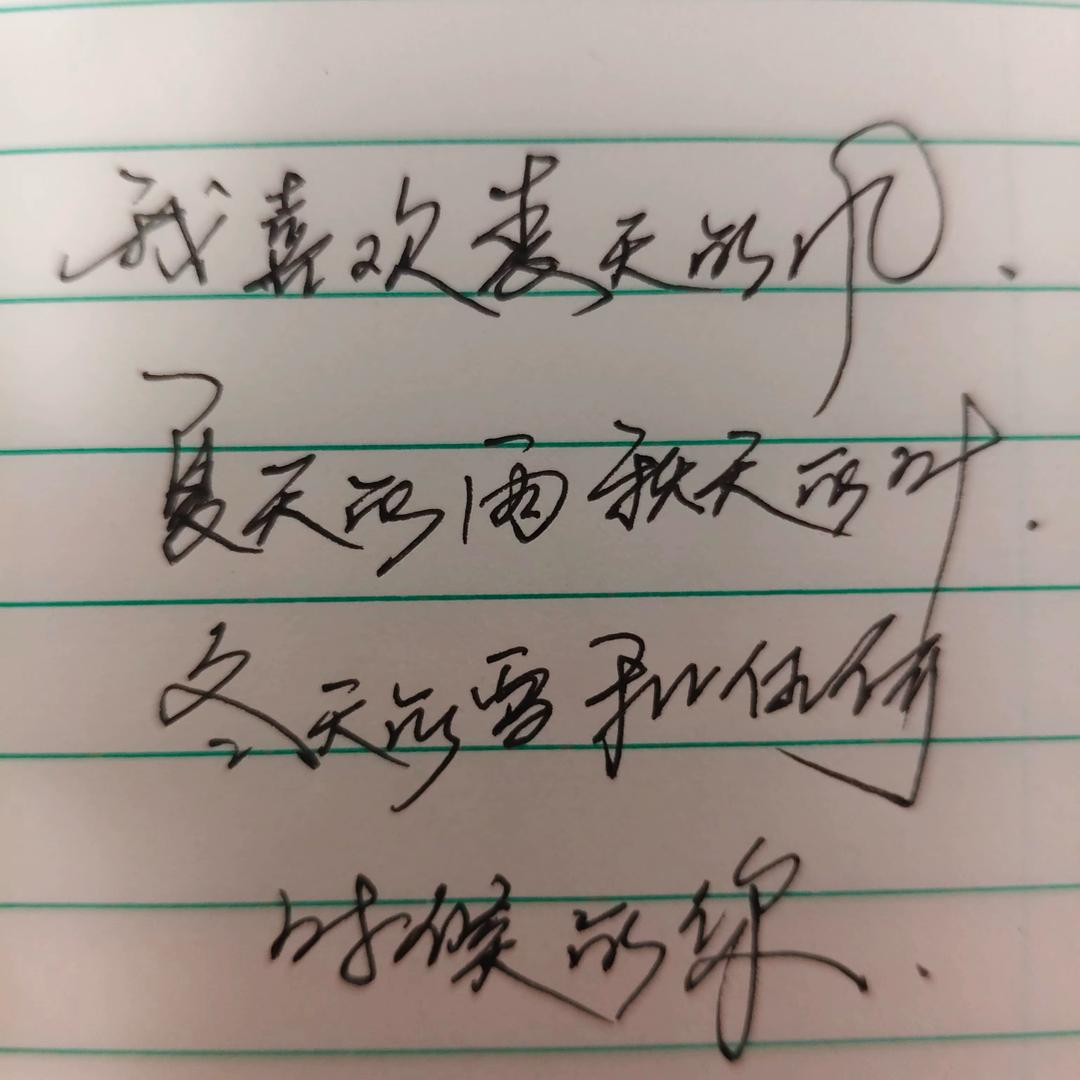 我喜欢春天的风.
夏天的雨秋天的叶.
冬天的雪和任何
时候的你.